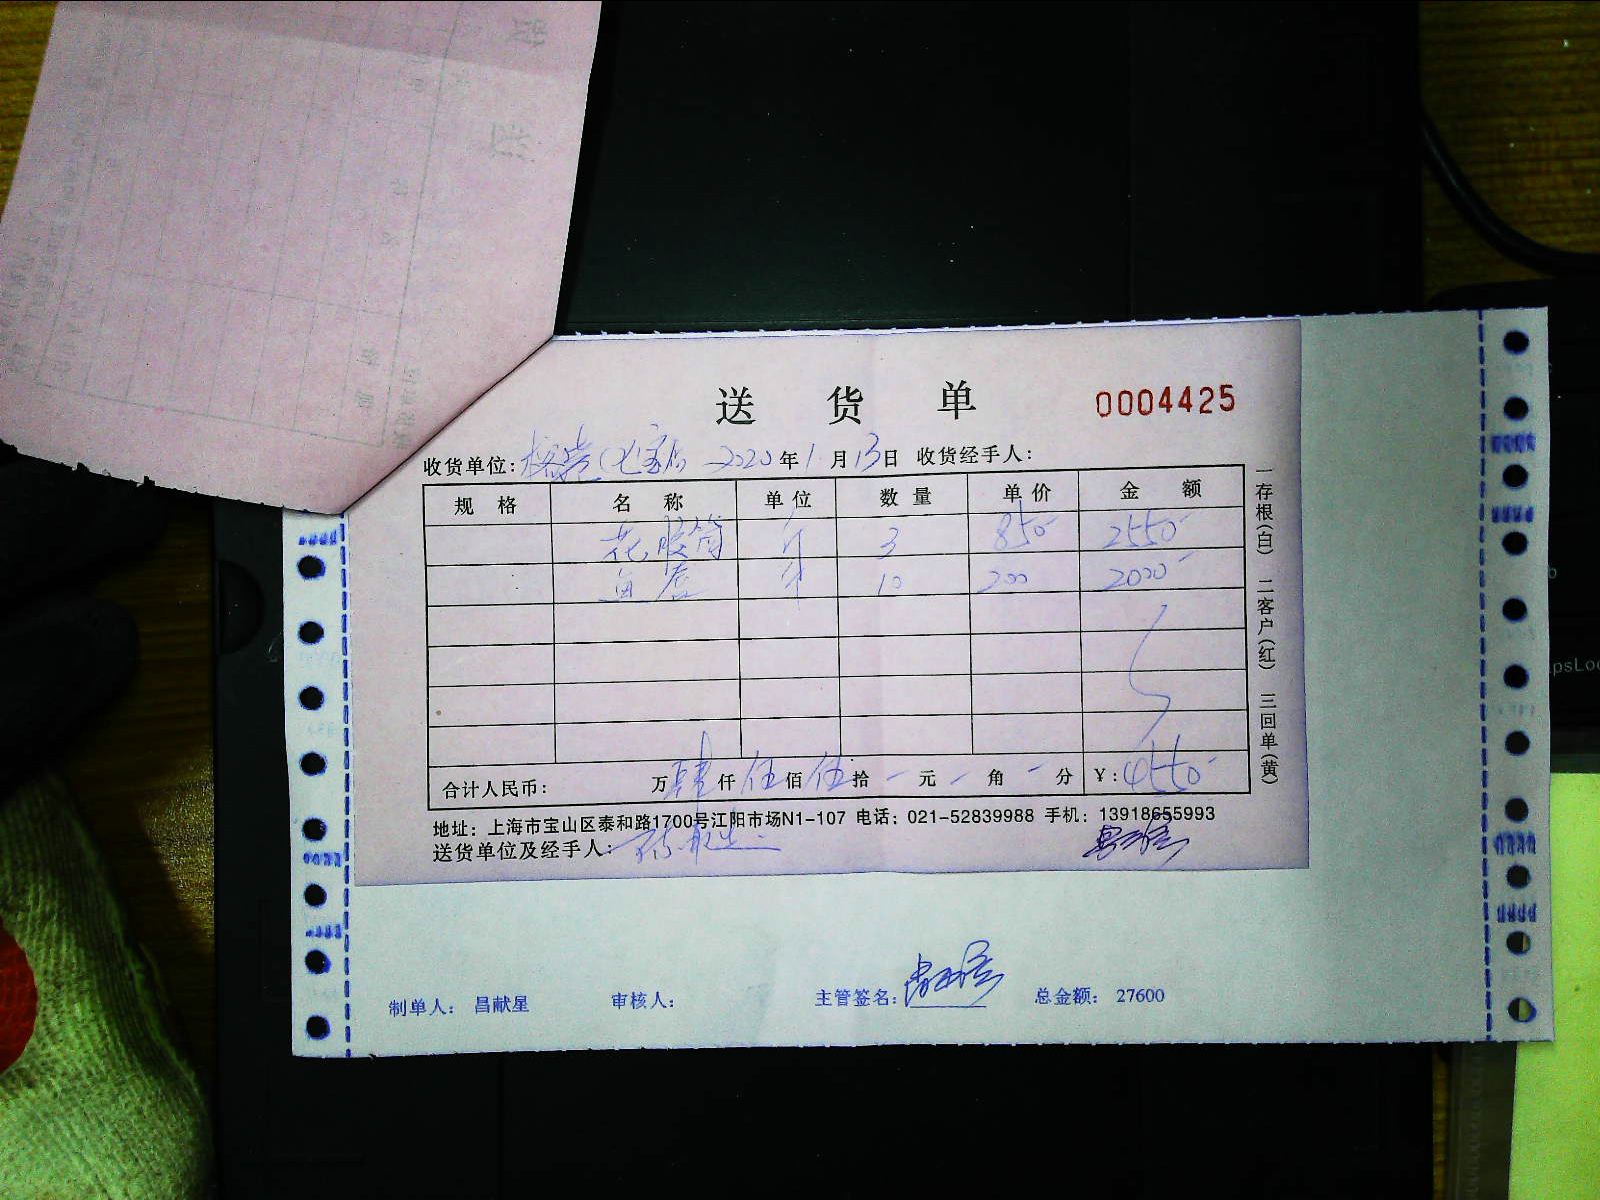 送 货 单 0004425
收货单位: 2020年1月13日 收货经手人:
规 格 名 称 单位 数量 单价 金 额
花胶筒 斤 3 850- 2550-
鱼唇 斤 10 200 2000-
合计人民币: 万肆仟伍佰伍拾-元-角-分 ¥:4550-
地址: 上海市宝山区泰和路1700号江阳市场N1-107 电话: 021-52839988 手机: 13918655993
送货单位及经手人:
一存根(白) 二客户(红) 三回单(黄)
制单人: 昌献星 审核人: 主管签名: 总金额: 27600